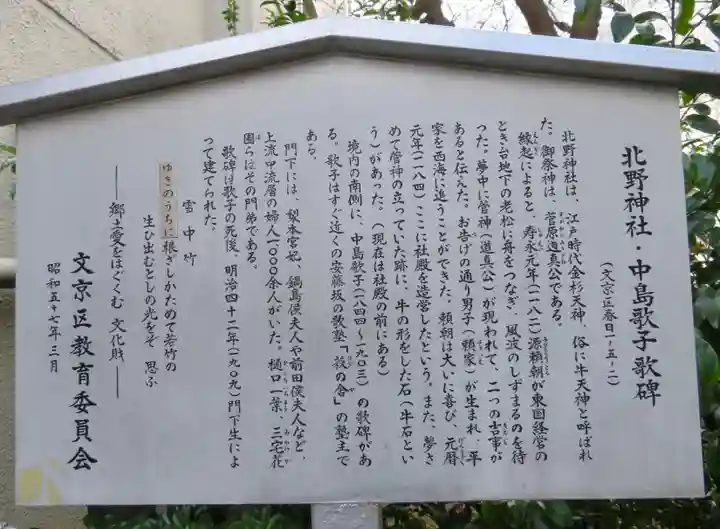 北野神社・中島歌子歌碑
(文京区春日一ー五ー二)
北野神社は、江戸時代金杉天神、俗に牛天神と呼ばれ
た。御祭神は、菅原道真公である。
縁起によると、寿永元年(一一八二)源頼朝が東国経営の
とき台地下の老松に舟をつなぎ、風波のしずまるのを待
った。夢中に菅神(道真公)が現われて、二つの吉事が
あると伝えた。お告げの通り男子(頼家)が生まれ、平
家を西海に追うことができた。頼朝は大いに喜び、元暦
元年(一一八四)ここに社殿を造営したという。また、夢さ
めて菅神の立っていた跡に、牛の形をした石(牛石とい
う)があった。(現在は社殿の前にある)
境内の南側に、中島歌子(一八四四〜一九〇三)の歌碑があ
る。歌子はすぐ近くの安藤坂の歌塾「萩の舎」の塾主で
ある。
門下には、梨本宮妃、鍋島侯夫人や前田侯夫人など、
上流中流層の婦人一〇〇〇余人がいた。樋口一葉、三宅花
圃らはその門弟である。
歌碑は歌子の死後、明治四十二年(一九〇九)門下生によ
って建てられた。
雪中竹
ゆきのうちに根ざしかためて若竹の
生ひ出むとしの光をぞ思ふ
──郷土愛をはぐくむ文化財──
文京区教育委員会
昭和五十七年三月